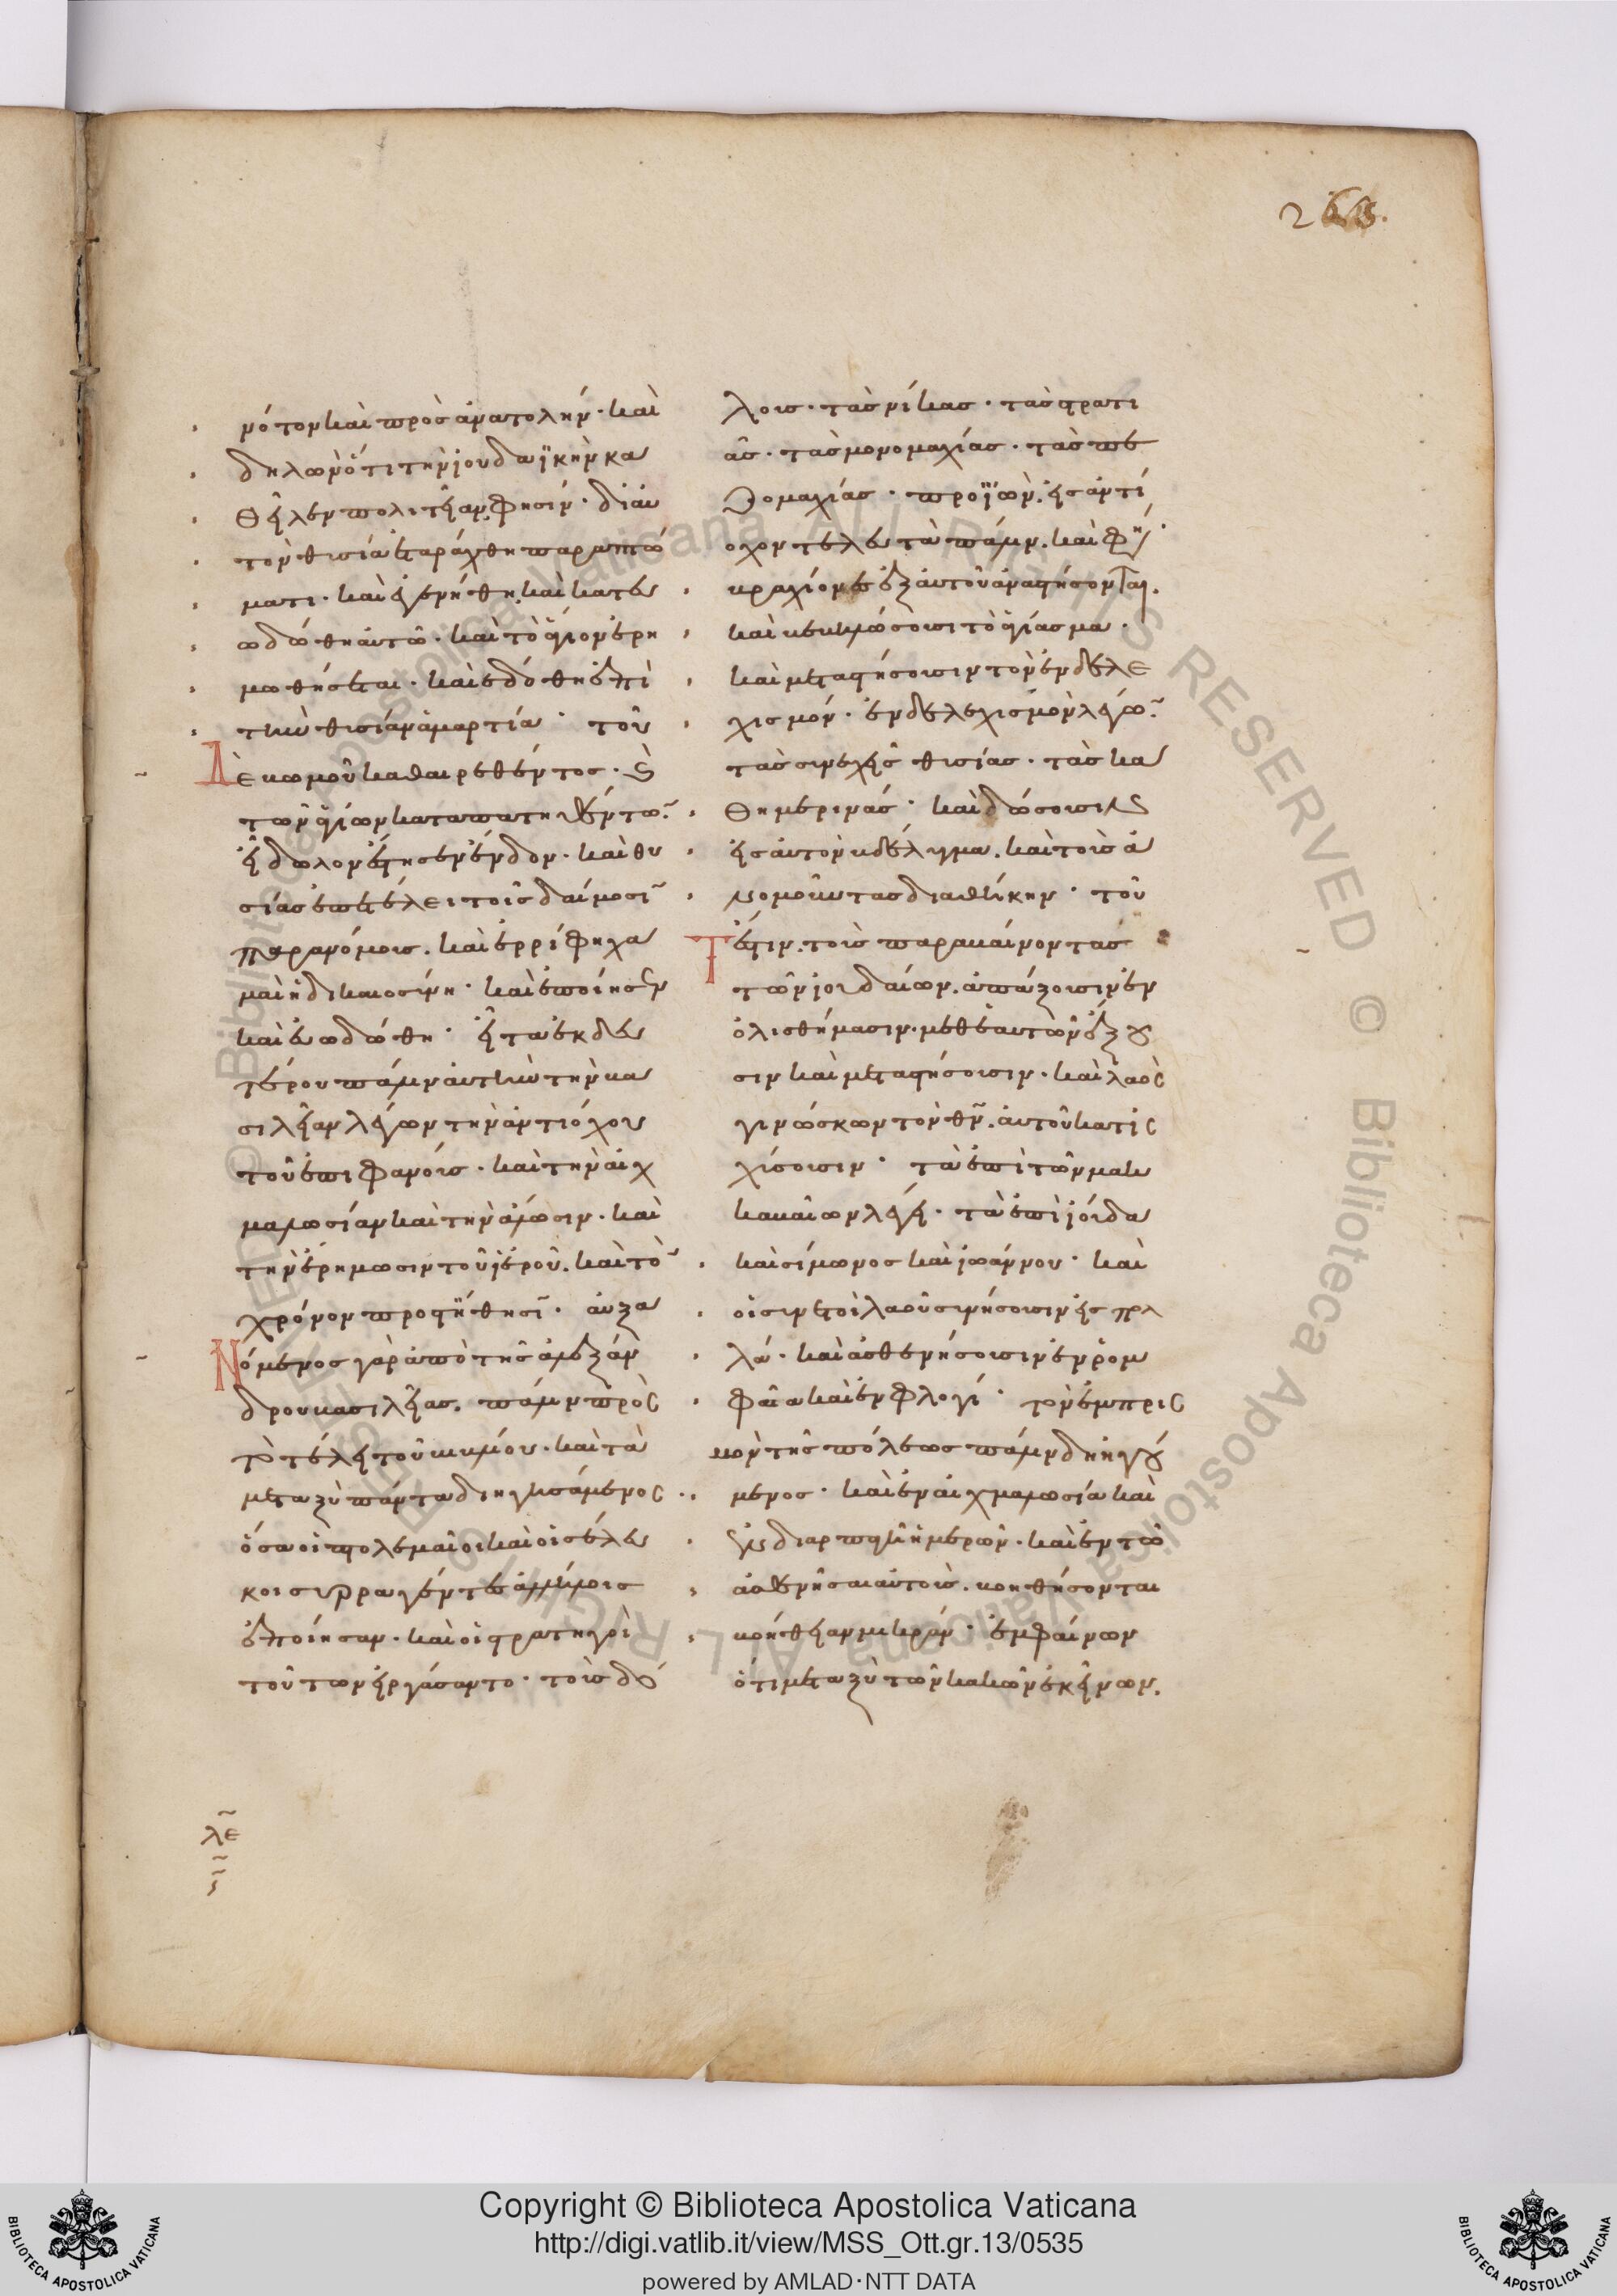 266.
νότον καὶ πρὸς ἀνατολήν· καὶ
δηλῶν ὅτι τὴν ἰουδαϊκὴν κα
θεῖλεν πολιτείαν, φησίν· δι' αὐ
τὸν θυσία ἐταράχθη παραπτώ
ματι· καὶ ἐγενήθη, καὶ κατευ
ωδώθη αὐτῶ· καὶ τὸ ἅγιον ἐρη
μωθήσεται· καὶ ἐδόθη ἐπὶ
τὴν θυσίαν ἁμαρτία· τοῦ
Δὲ νωμοῦ καθαιρεθέντος· καὶ
τῶν ἁγίων καταπατηθέντω̃
εἴδωλον ἔστησεν ἔνδον· καὶ θυ
σίας ἐπετέλει τοῖς δαίμοσι̃
παρανόμοις. καὶ ἐρρίφη χα
μαὶ ἡ δικαιοσύνη· καὶ ἐποίησεν
καὶ εὐωδώθη· εἶτα ἐκ δευ
τέρου πάλιν αὐτὴν τὴν βα
σιλείαν λέγων τὴν ἀντιόχου
τοῦ ἐπιφανοῦς· καὶ τὴν αἰχ
μαλωσίαν καὶ τὴν ἅλωσιν· καὶ
τὴν ἐρήμωσιν τοῦ ἱεροῦ. καὶ τὸ̃
χρόνον προστίθησι̃· αὐξα
Νόμενος γὰρ ἀπὸ τῆς ἀλεξάν
δρου βασιλείας. πάλιν πρὸς
τῶ τέλει τοῦ βιβλίου· καὶ τὰ
μεταξὺ πάντα διηγησάμενος
ὅσα οἱ πτολεμαῖοι καὶ οἱ σέλευ
κοι συρραγέντες ἀλλήλοις
ἐποίησαν· καὶ οἱ στρατηγοὶ
τούτων εἰργάσαντο· τοὺς δό
λους· τὰς νίκας· τὰς στρατι
ᾶς· τὰς μονομαχίας· τὰς πε
ζομαχίας· προϊὼν, εἰς ἀντί
οχον τελευτᾶ πάλιν. καὶ φή·
βραχίονες ἐξ αὐτοῦ ἀναστήσονται.
καὶ βεβηλώσουσι τὸ ἁγίασμα·
καὶ μεταστήσουσιν τὸν ἐνδελε
χισμόν· ἐνδελεχισμὸν λέγω̃
τὰς συνεχεῖς θυσίας· τὰς κα
θημερινάς· καὶ δώσουσιν
εἰς αὐτὸν βδέλυγμα. καὶ τοὺς ἀ
νομοῦντας διαθήκην· τοῦ
Τέστιν. τοὺς παραβαίνοντας
τῶν ἰουδαίων. ἀπάξουσιν ἐν
ὀλισθήμασιν. μεθ' ἑαυτῶν ἕξου
σιν καὶ μεταστήσουσιν· καὶ λαὸς
γινώσκων τὸν θν̃. αὐτοῦ κατις
χύσουσιν· τὰ ἐπὶ τῶν μακ
καβαίων λέγει· τὰ ἐπὶ ἰούδα
καὶ σίμωνος καὶ ἰωάννου· καὶ
οἱ συνετοὶ λαοῦ συνήσουσιν εἰς πολ
λά· καὶ ἀσθενήσουσιν ἐν ῥομ
φαία καὶ ἐν φλογί· τὸν ἐμπρις
μὸν τῆς πόλεως πάλιν διηγού
μενος· καὶ ἐν αἰχμαλωσία καὶ
ἐν διαρπαγῆ ἡμερῶν· καὶ ἐν τῶ
ἀσθενῆσαι αὐτοὺς. βοηθήσονται
βοήθειαν μικράν· ἐμφαίνων
ὅτι μεταξὺ τῶν κακῶν ἐκείνων.
λε
Copyright © Biblioteca Apostolica Vaticana
http://digi.vatlib.it/view/MSS_Ott.gr.13/0535
powered by AMLAD·NTT DATA
BIBLIOTECA APOSTOLICA VATICANA
BIBLIOTECA APOSTOLICA VATICANA